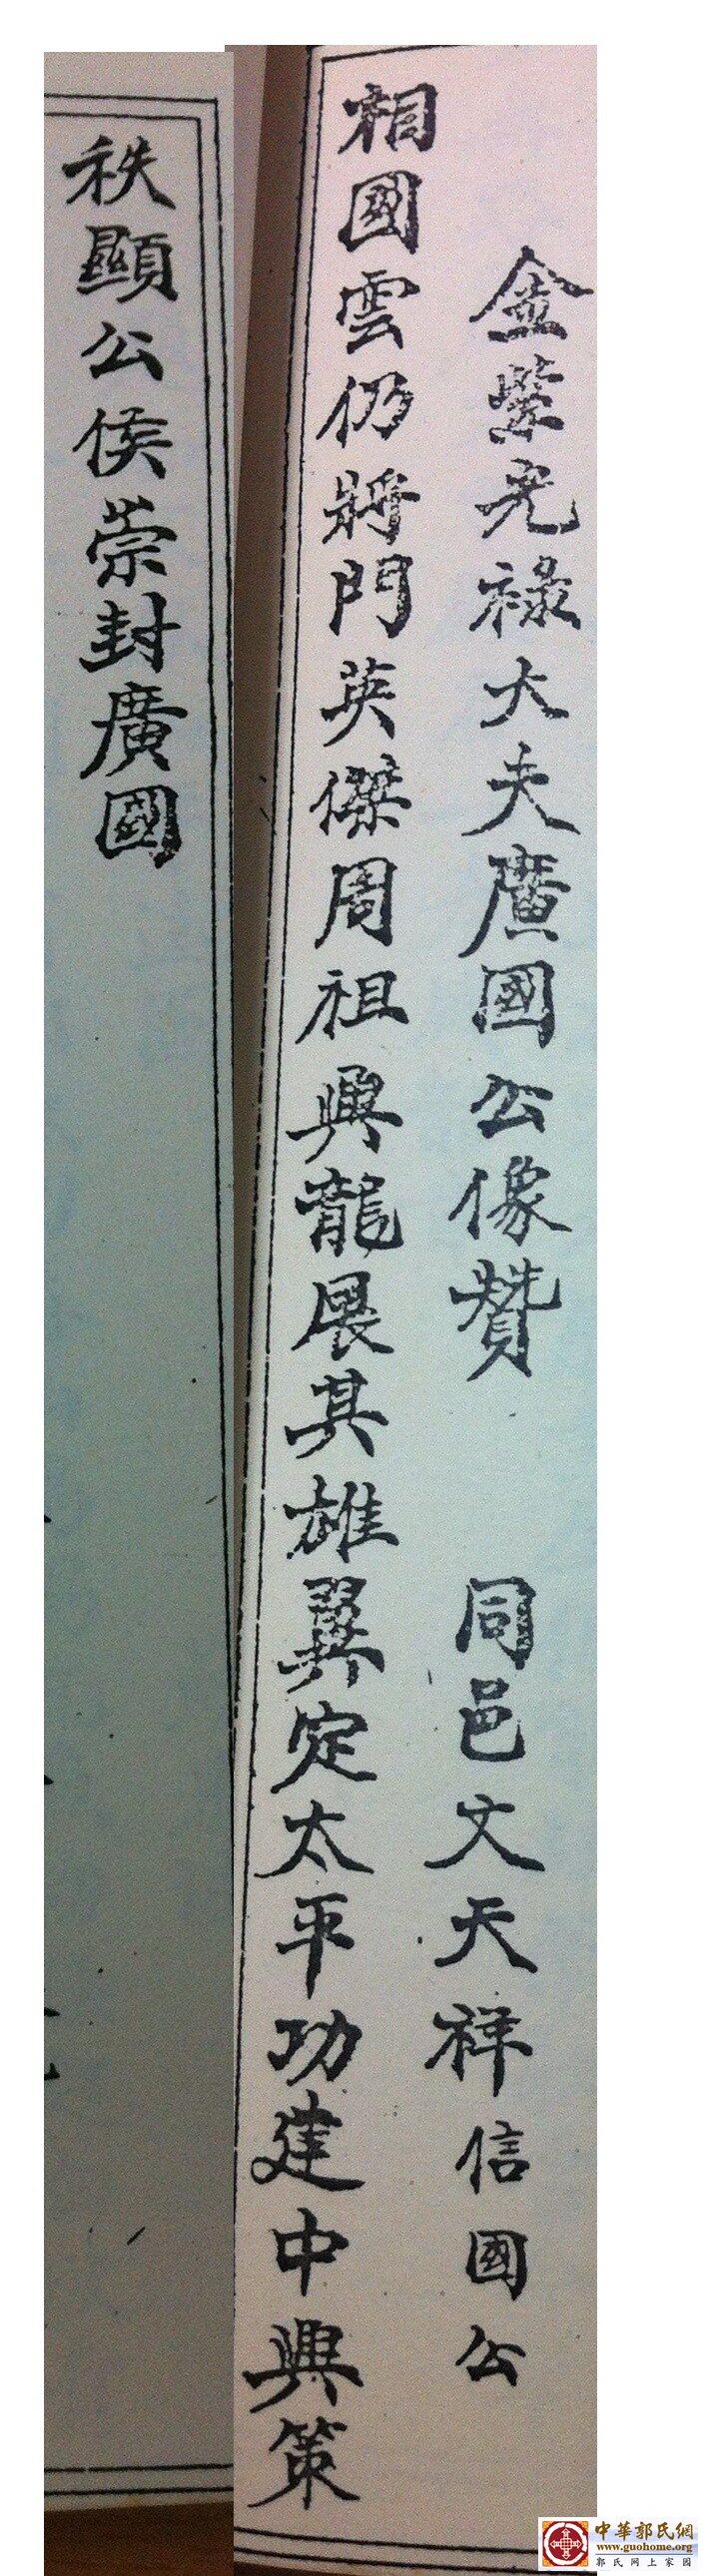 金紫光祿大夫廣國公像贊 同邑文天祥信國公
相國雲仍將門英傑周祖興龍展其雄翼定太平功建中興策
秩顯公侯崇封廣國
中華郭氏網
www.guohome.org
郭氏网上家园